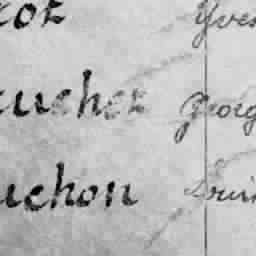 cot Yves
cucher Georg
uchon Louis